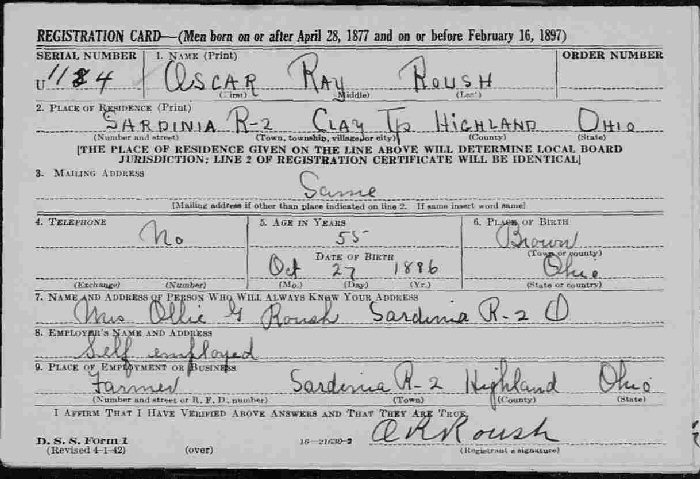 REGISTRATION CARD—(Men born on or after April 28, 1877 and on or before February 16, 1897)
SERIAL NUMBER 1. NAME (Print) ORDER NUMBER
U 1184 OSCAR RAY ROUSH
(First) (Middle) (Last)
2. PLACE OF RESIDENCE (Print)
SARDINIA R-2 CLAY Tp HIGHLAND OHIO
(Number and street) (Town, township, village, or city) (County) (State)
[THE PLACE OF RESIDENCE GIVEN ON THE LINE ABOVE WILL DETERMINE LOCAL BOARD
JURISDICTION; LINE 2 OF REGISTRATION CERTIFICATE WILL BE IDENTICAL]
3. MAILING ADDRESS
Same
[Mailing address if other than place indicated on line 2. If same insert word same]
4. TELEPHONE 5. AGE IN YEARS 6. PLACE OF BIRTH
No 55 Brown
DATE OF BIRTH (Town or county)
Oct 27 1886 Ohio
(Exchange) (Number) (Mo.) (Day) (Yr.) (State or country)
7. NAME AND ADDRESS OF PERSON WHO WILL ALWAYS KNOW YOUR ADDRESS
Mrs Ollie G Roush Sardinia R-2 O
8. EMPLOYER'S NAME AND ADDRESS
Self employed
9. PLACE OF EMPLOYMENT OR BUSINESS
Farmer Sardinia R-2 Highland Ohio
(Number and street or R. F. D. number) (Town) (County) (State)
I AFFIRM THAT I HAVE VERIFIED ABOVE ANSWERS AND THAT THEY ARE TRUE.
D. S. S. Form 1
(Revised 4-1-42) (over) 16—21630-2 O R Roush
(Registrant's signature)